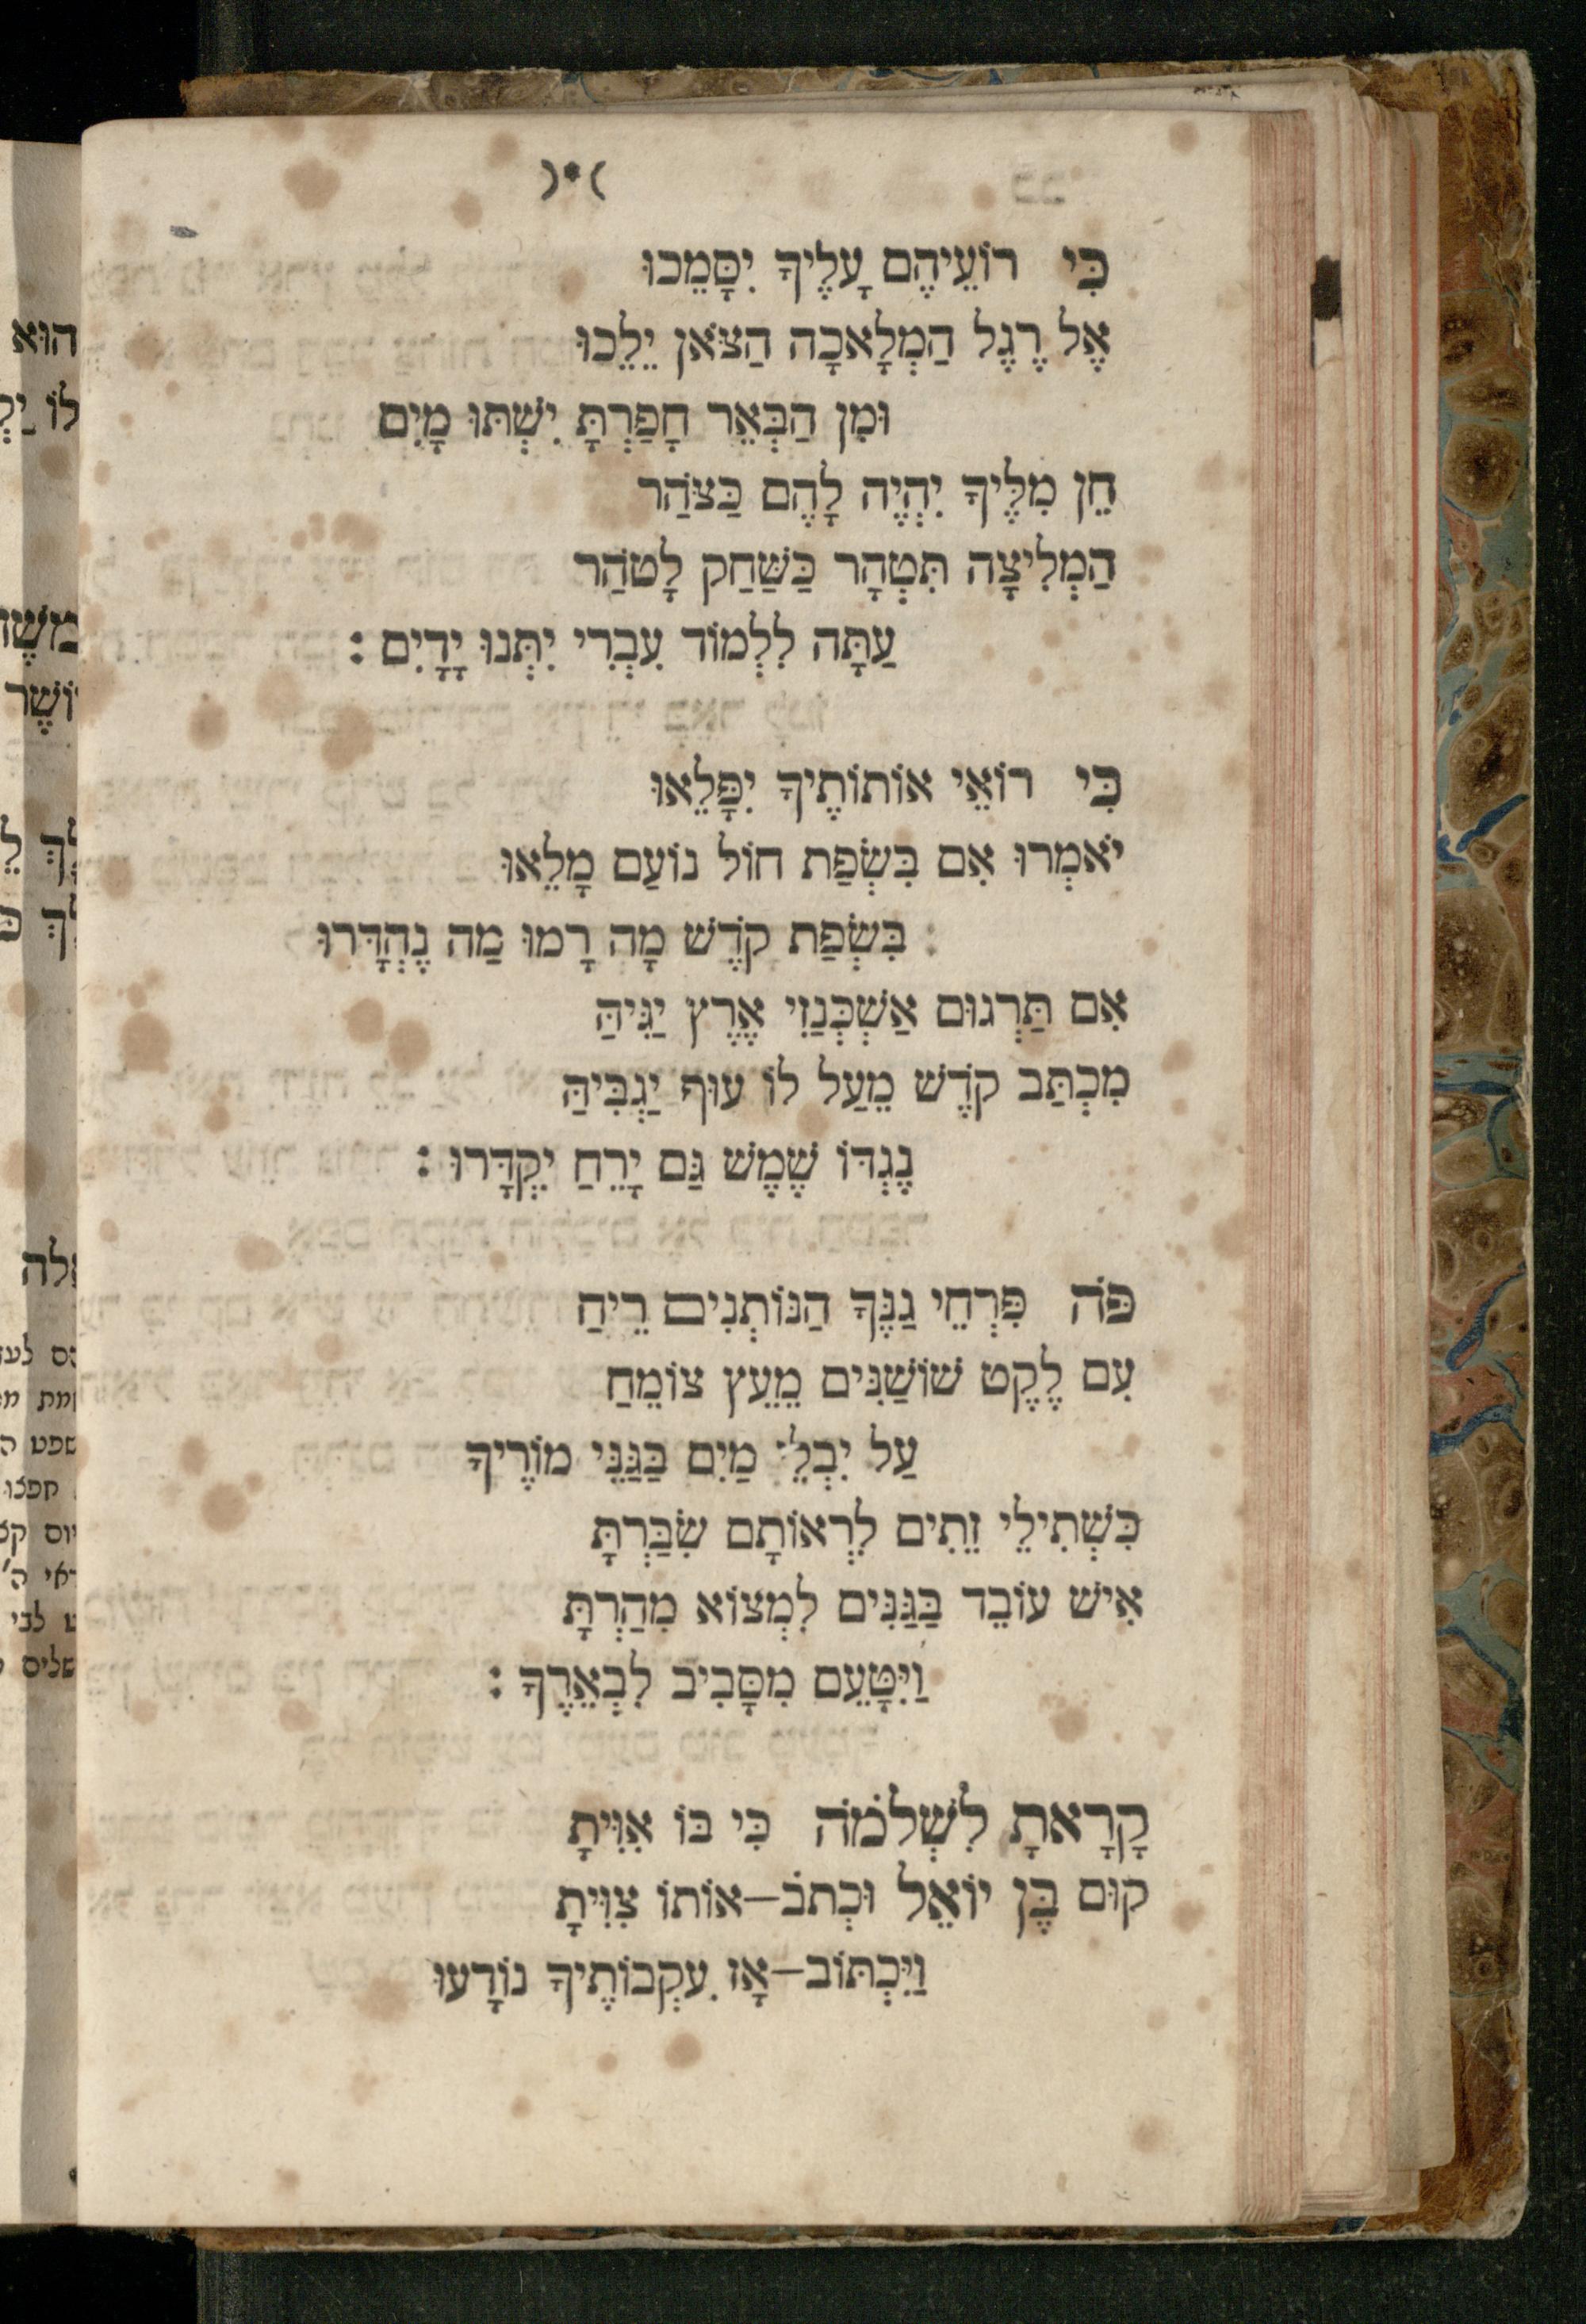 )*(
כִּי רוֹעֵיהֶם עָלֶיךָ יִסָּמֵכוּ
אֶל רֶגֶל הַמְלָאכָה הַצֹּאן יֵלֵכוּ
וּמִן הַבְּאֵר חָפַרְתָּ יִשְׁתּוּ מָיִם
חֵן מִלֶּיךָ יִהְיֶה לָהֶם כַּצֹּהַר
הַמְלִיצָה תִּטְהָר כַּשַּׁחַק לָטֹהַר
עַתָּה לִלְמוֹד עִבְרִי יִתְּנוּ יָדָיִם :
כִּי רוֹאֵי אוֹתוֹתֶיךָ יִפָּלֵאוּ
יֹאמְרוּ אִם בִּשְׂפַת חוֹל נוֹעַם מָלֵאוּ
בִּשְׂפַת קֹדֶשׁ מָה רָמוּ מַה נֶהְדָּרוּ
אִם תַּרְגוּם אַשְׁכְּנַזִי אֶרֶץ יַגִּיהַּ
מִכְתַּב קֹדֶשׁ מֵעַל לוֹ עוּף יַגְבִּיהַּ
נֶגְדּוֹ שֶׁמֶשׁ גַּם יָרֵחַ יִקְדָּרוּ :
פֹּה פִּרְחֵי גַנֶּךָ הַנּוֹתְנִים רֵיחַ
עִם לֶקֶט שׁוֹשַׁנִּים מֵעֵץ צוֹמֵחַ
עַל יִבְלֵי מַיִם בַּגַּנֵּי מוֹרֶיךָ
כִּשְׁתִילֵי זֵתִים לִרְאוֹתָם שִׂבַּרְתָּ
אִישׁ עוֹבֵד בַּגַּנִּים לִמְצוֹא מִהַרְתָּ
וַיִּטָּעֵם מִסָּבִיב לִבְאֵרֶךָ :
קָרָאתָ לִשְׁלֹמֹה כִּי בּוֹ אִוִּיתָ
קוּם בֶּן יוֹאֵל וּכְתֹב–אוֹתוֹ צִוִּיתָ
וַיִּכְתּוֹב–אָז עִקְבוֹתֶיךָ נוֹדָעוּ